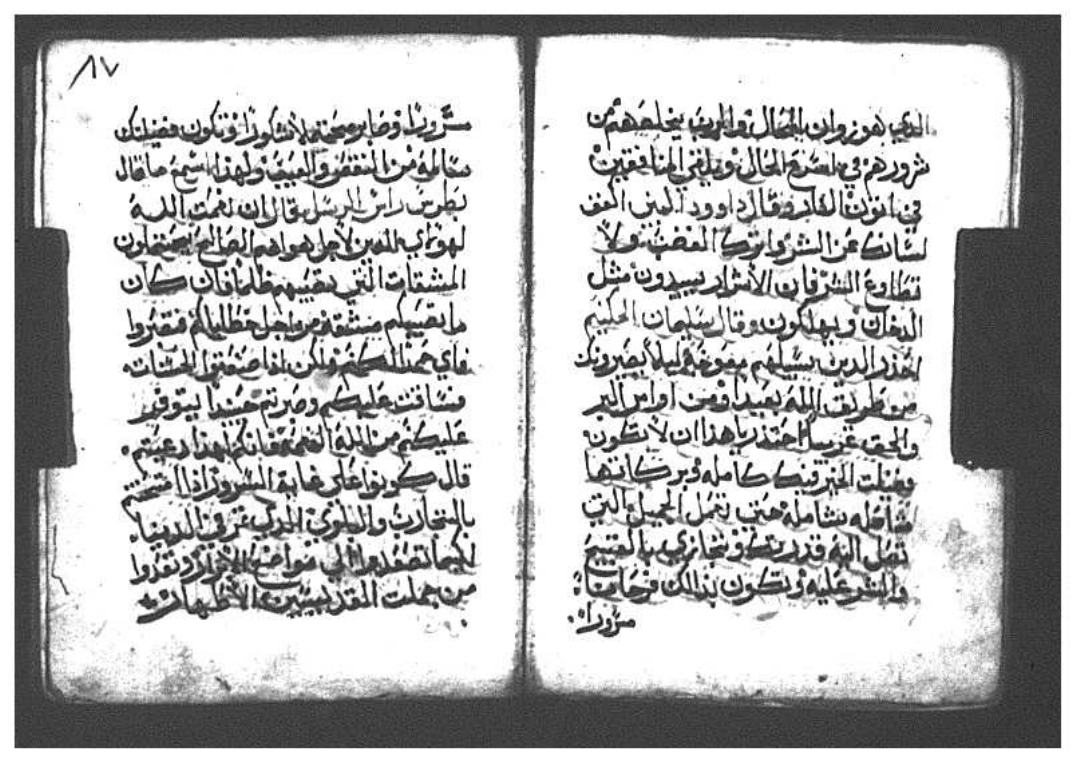 الذي هو زوان المحال والريب يخلصهم من
شرورهم في المحال ويلقي المنافقين
في اتون النار وقال داوود النبي اكفف
لسانك عن الشر واترك الغضب ولا
تطاوع الشر فان الاشرار يبيدون مثل
الدخان ويهلكون وقال سليمان الحكيم
احذر الذين سبيلهم معوجه ليلا يصيرونك
من طريق الله بعيدا ومن اوامر البر
والحق غريبا احتذر يا هذا ان لا تكون
فيك كامله وبركاتها
شامله حتى تعمل الجميل التي
تصل اليه قدرتك وتجازي بالقبيح
والشر عليه وتكون بذالك فرحانا
مسرورا
٨٧
مسرورا وصابر شكورا وتكون فضيلتك
سالمه من النقص والعيب ولهذا اسمع ما قال
بطرس راس الرسل قال ان نعمت الله
لهولاي الذين لاجل هواهم الصالح يحتملون
المشقات التي تصيبهم ظلما فان كان
ما يصيبكم مشقه من اجل خطاياكم فتصبروا
فاي حمد لكم ولكن اذا صنعتم الحسنات
وصرتم
عليكم من الله النعمه فانكم لهذا دعيتم
قال كونوا على غاية السرور اذا امتحنتم
بالتجارب والبلوي الذي في الدنيا
لكيما تصعدوا الي مواضع الابرار وتعدوا
من جملت القديسين الاطهار